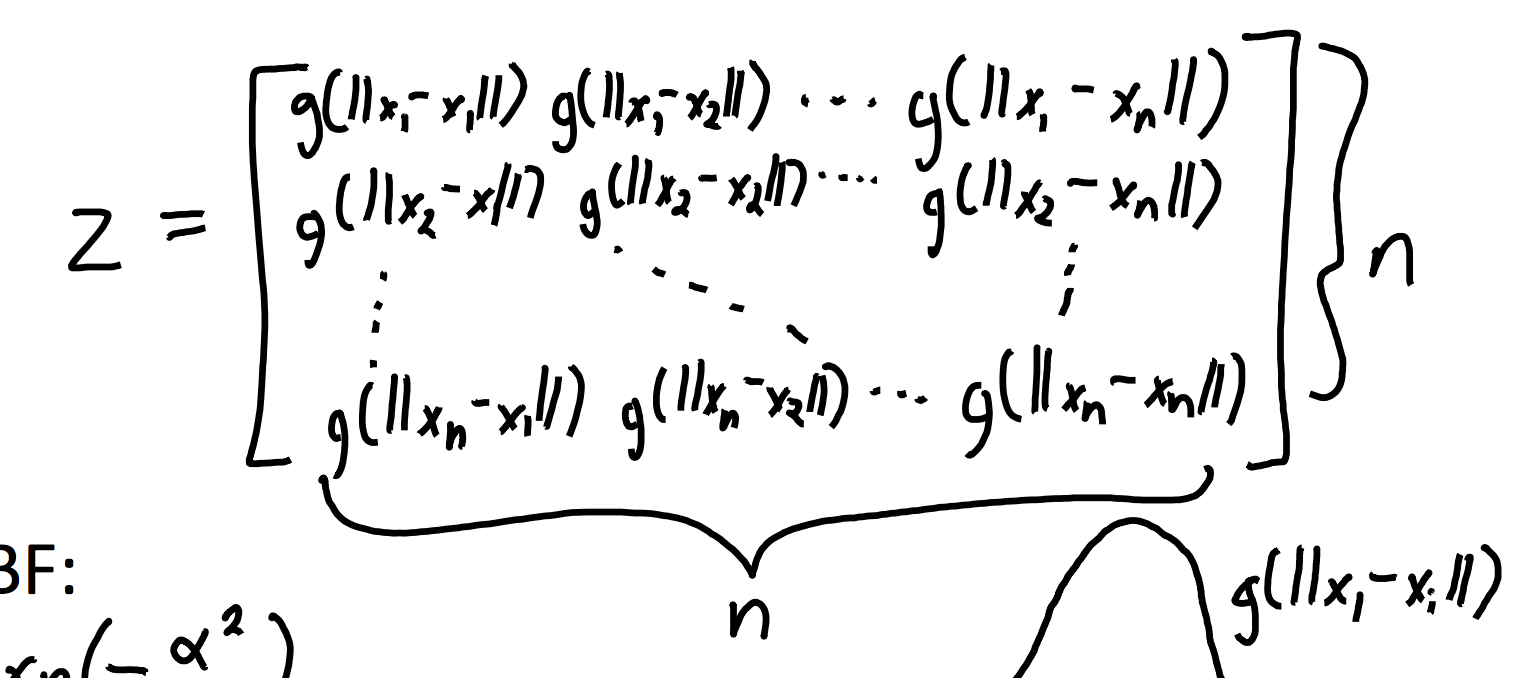 z = [ g(||x₁-x₁||) g(||x₁-x₂||) ... g(||x₁-xₙ||)
g(||x₂-x₁||) g(||x₂-x₂||) .... g(||x₂-xₙ||)
g(||xₙ-x₁||) g(||xₙ-x₂||) ... g(||xₙ-xₙ||) ] } n
n
BF:
xp(-α²)
g(||x₁-xᵢ||)